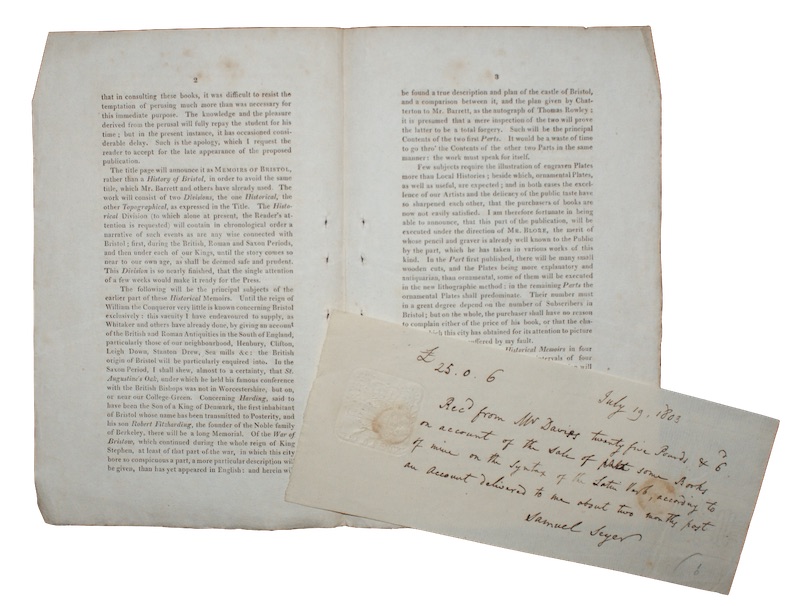 2
that in consulting these books, it was difficult to resist the
temptation of perusing much more than was necessary for
this immediate purpose. The knowledge and the pleasure
derived from the perusal will fully repay the student for his
time; but in the present instance, it has occasioned consi-
derable delay. Such is the apology, which I request the
reader to accept for the late appearance of the proposed
publication.
The title page will announce it as MEMOIRS OF BRISTOL,
rather than a History of Bristol, in order to avoid the same
title, which Mr. Barrett and others have already used. The
work will consist of two Divisions, the one Historical, the
other Topographical, as expressed in the Title. The Histo-
rical Division (to which alone at present, the Reader's at-
tention is requested) will contain in chronological order a
narrative of such events as are any wise connected with
Bristol; first, during the British, Roman and Saxon Periods,
and then under each of our Kings, until the story comes so
near to our own age, as shall be deemed safe and prudent.
This Division is so nearly finished, that the single attention
of a few weeks would make it ready for the Press.
The following will be the principal subjects of the
earlier part of these Historical Memoirs. Until the reign of
William the Conqueror very little is known concerning Bristol
exclusively: this vacuity I have endeavoured to supply, as
Whitaker and others have already done, by giving an account
of the British and Roman Antiquities in the South of England,
particularly those of our neighbourhood, Henbury, Clifton,
Leigh Down, Stanton Drew, Sea mills &c: the British
origin of Bristol will be particularly enquired into. In the
Saxon Period, I shall shew, almost to a certainty, that St.
Augustine's Oak, under which he held his famous conference
with the British Bishops was not in Worcestershire, but on,
or near our College-Green. Concerning Harding, said to
have been the Son of a King of Denmark, the first inhabitant
of Bristol whose name has been transmitted to Posterity, and
his son Robert Fitzharding, the founder of the Noble family
of Berkeley, there will be a long Memorial. Of the War of
Bristow, which continued during the whole reign of King
Stephen, at least of that part of the war, in which this city
bore so conspicuous a part, a more particular description will
be given, than has yet appeared in English: and herein wi
3
be found a true description and plan of the castle of Bristol,
and a comparison between it, and the plan given by Chat-
terton to Mr. Barrett, as the autograph of Thomas Rowley;
it is presumed that a mere inspection of the two will prove
the letter to be a total forgery. Such will be the principal
Contents of the two first Parts. It would be a waste of time
to go thro' the Contents of the other two Parts in the same
manner: the work must speak for itself.
Few subjects require the illustration of engraven Plates
more than Local Histories; beside which, ornamental Plates,
as well as useful, are expected; and in both cases the excel-
lence of our Artists and the delicacy of the public taste have
so sharpened each other, that the purchasers of books are
now not easily satisfied. I am therefore fortunate in being
able to announce, that this part of the publication, will be
executed under the direction of MR. BLORE, the merit of
whose pencil and graver is already well known to the Public
by the part, which he has taken in various works of this
kind. In the Part first published, there will be many small
wooden cuts, and the Plates being more explanatory and
antiquarian, than ornamental, some of them will be executed
in the new lithographic method; in the remaining Parts the
ornamental Plates shall predominate. Their number must
in a great degree depend on the number of Subscribers in
Bristol; but on the whole, the purchaser shall have no reason
to complain either of the price of his book, or that the cha-
which this city has obtained for its attention to picture
suffered by any fault.
Historical Memoirs in four
intervals of four
will
£25. 0. 6
July 19. 1803
Recd from Mr Davies twenty five Pounds & 6d.
on account of the sale of some Books
of mine on the Syntax of the Latin Verb, according to
an account delivered to me about two months past
Samuel Seyer